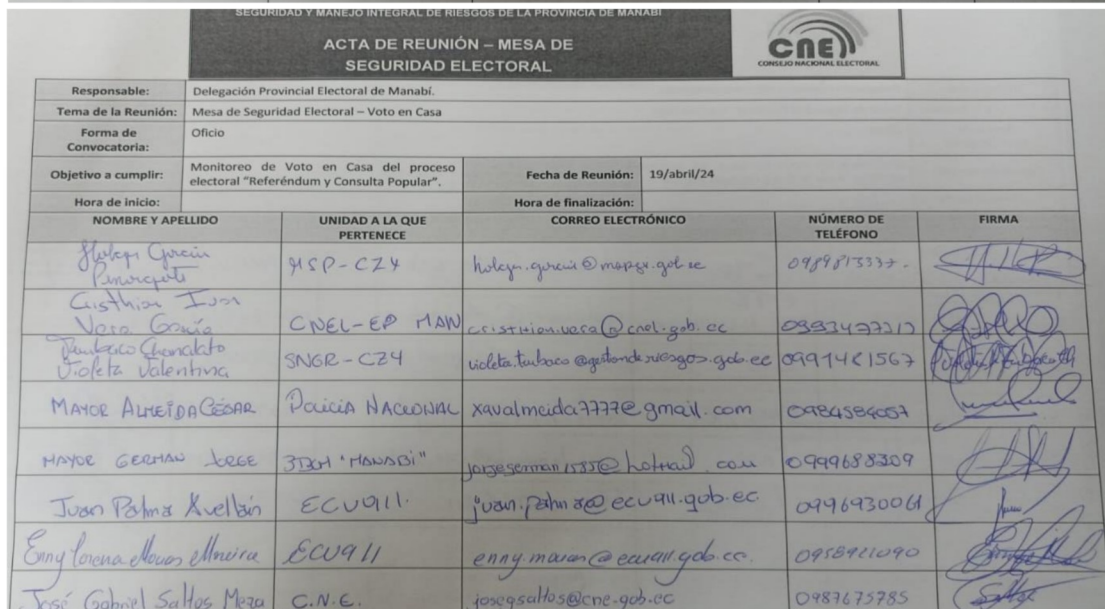 SEGURIDAD Y MANEJO INTEGRAL DE RIESGOS DE LA PROVINCIA DE MANABÍ
ACTA DE REUNIÓN – MESA DE
SEGURIDAD ELECTORAL
CNE
CONSEJO NACIONAL ELECTORAL
Responsable: Delegación Provincial Electoral de Manabí.
Tema de la Reunión: Mesa de Seguridad Electoral – Voto en Casa
Forma de Oficio
Convocatoria:
Objetivo a cumplir: Monitoreo de Voto en Casa del proceso
electoral "Referéndum y Consulta Popular".
Fecha de Reunión: 19/abril/24
Hora de inicio: Hora de finalización:
NOMBRE Y APELLIDO UNIDAD A LA QUE CORREO ELECTRÓNICO NÚMERO DE FIRMA
PERTENECE TELÉFONO
García
MSP-CZ4
Cristhian
Vera García CNEL-EP MAN cristhian.vera@cnel.gob.ec
Violeta Valentina SNGR-CZ4 violeta.tubaco@gestionderiesgos.gob.ec 0991481567
MAYOR ALMEIDA CÉSAR NACIONAL xavalmeida7777@gmail.com 0984584057
MAYOR GERMAN JORGE "MANABI" 0999688309
Juan Palma Avellán ECU911. juan.palma@ecu911.gob.ec 0996930061
Enny ECU911
José Gabriel Saltos Meza C.N.E. josegsaltos@cne.gob.ec 0987675785